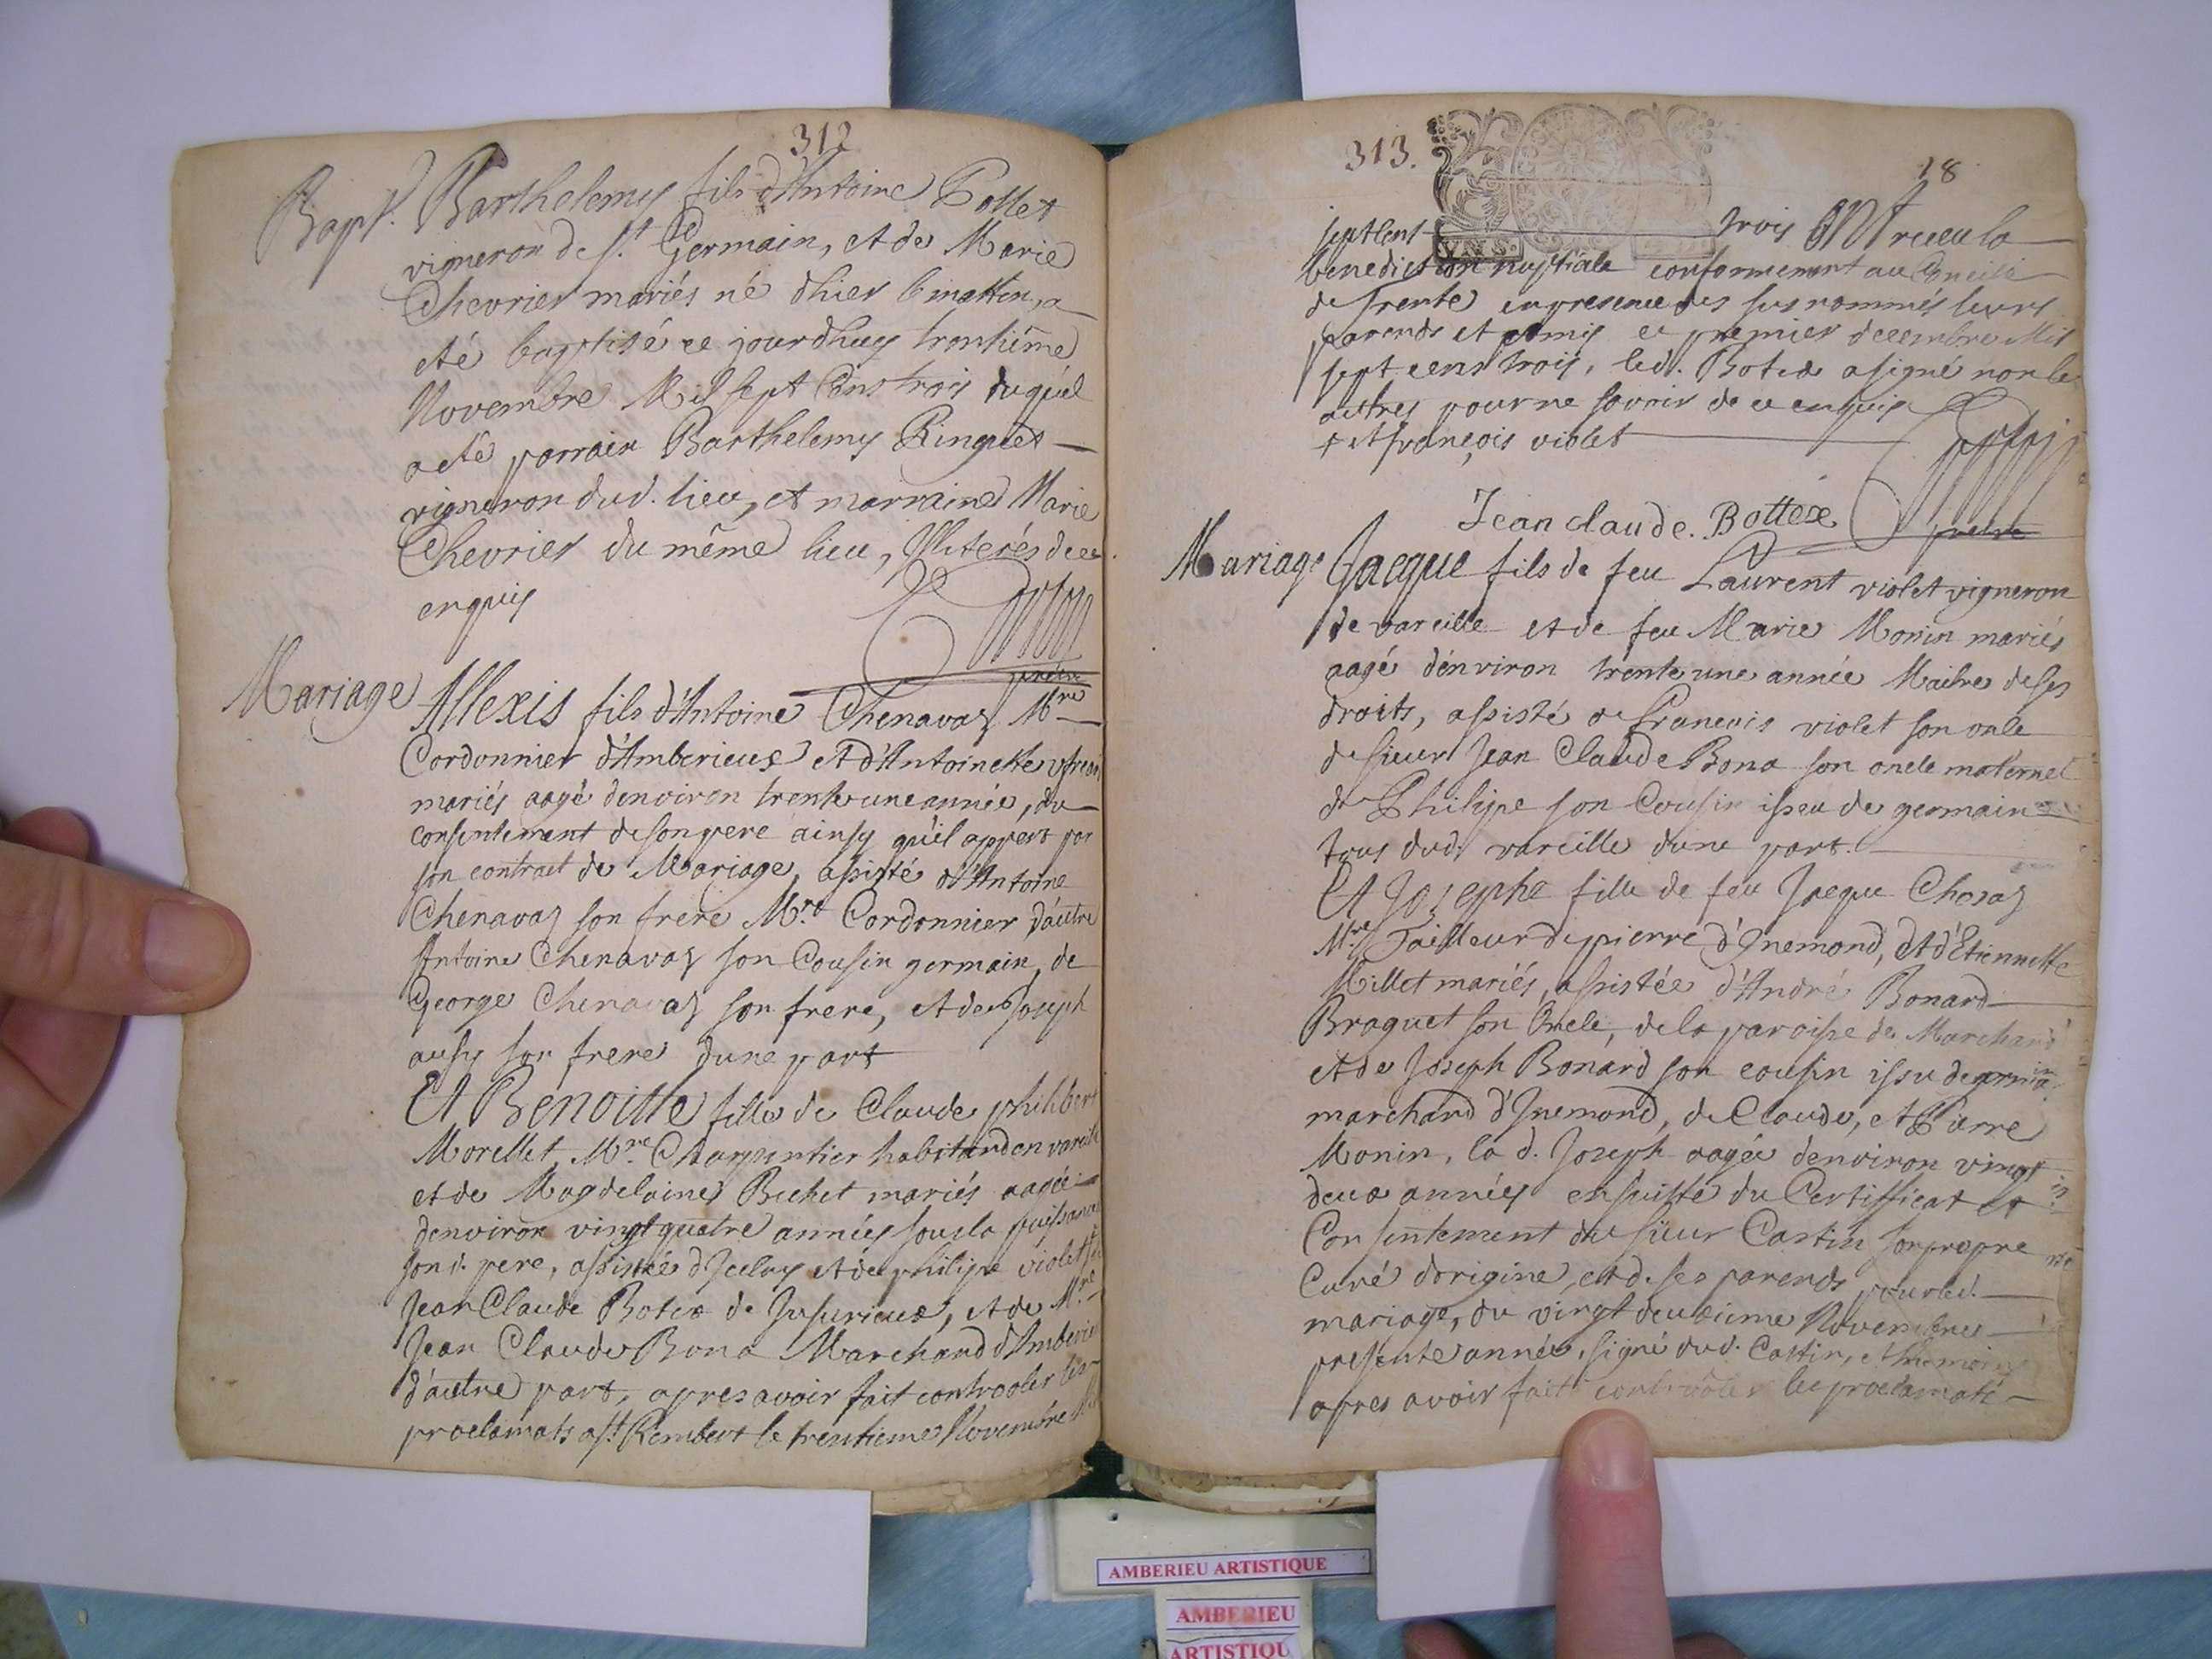 312
Bapt. Barthelemy fils d'Antoine Pollet
vigneron de st. Germain, et de Marie
Chevrier mariés né d'hier le mattin, a
eté baptisé ce jourdhuy trentième
Novembre Mil sept Cens trois duquel
a eté parrain Barthelemy Ringuet
vigneron dud. lieu, et marraine Marie
Chevrier du même lieu, Illiterés de ce
enquis
Mariage Allexis fils d'Antoine Chenavaz Mre
Cordonnier d'Amberieux et d'Antoinette
mariés aagé denviron trente une année, du
consentement de son pere ainsy qu'il appert par
son contract de Mariage, assisté d'Antoine
Chenavaz son frere Mre Cordonnier d'autre
Antoine Chenavaz son Cousin germain, de
George Chenavaz son frere, et de Joseph
aussy son frere dune part
Et Benoitte fille de Claude philibert
Morellet Mre Charpentier habitand en vareille
et de Magdelaine Buchet mariés aagée
denviron vingt quatre années sous la puissance
sond. pere, assistée d'Iceluy et de philipe violet
Jean Claude Botex de Jusurieux, et de Mre
Jean Claude Bona Marchand d'Amberieu
d'autre part, apres avoir fait controoler les
proclamats a st Rembert le trentieme Novembre Mil
313.
18
sept cent trois ont receu la
benediction nuptiale conformement au Concile
de Trente en presence des sus nommés leurs
parends et amis ce premier decembre Mil
sept cens trois, led. Botex a signé non les
autres pour ne savoir de ce enquis
+ et françois violet
Jean claude. Bottex
prebre
Mariage Jacque fils de feu Laurent violet vigneron
de vareille et de feu Marie Monin mariés
aagé d'environ trente une année Maitre de ses
droits, assisté de francois violet son oncle
de sieur Jean Claude Bona son oncle maternel
de Philipe son Cousin issu de germain
tous dud. vareille dune part.
Et Josephe fille de feu Jacque Chosaz
Mre Tailleur de pierre d'Inemond, et d'Etiennette
Millet mariés, assistée d'André Bonard
Braquet son Oncle, de la paroisse de Marchand
et de Joseph Bonard son cousin issu de germain
marchand d'Inemond, de Claude, et Pierre
Monin, la d. Joseph aagée denviron vingt
deux années ensuitte du Certifficat et
Consentement du sieur Castin son propre
Curé dorigine, et de ses parends pour led.
mariage, du vingt deuxieme Novembre
presente année, signé dud. Castin, et
apres avoir fait controoler les proclamats
AMBERIEU ARTISTIQUE
AMBERIEU
ARTISTIQU